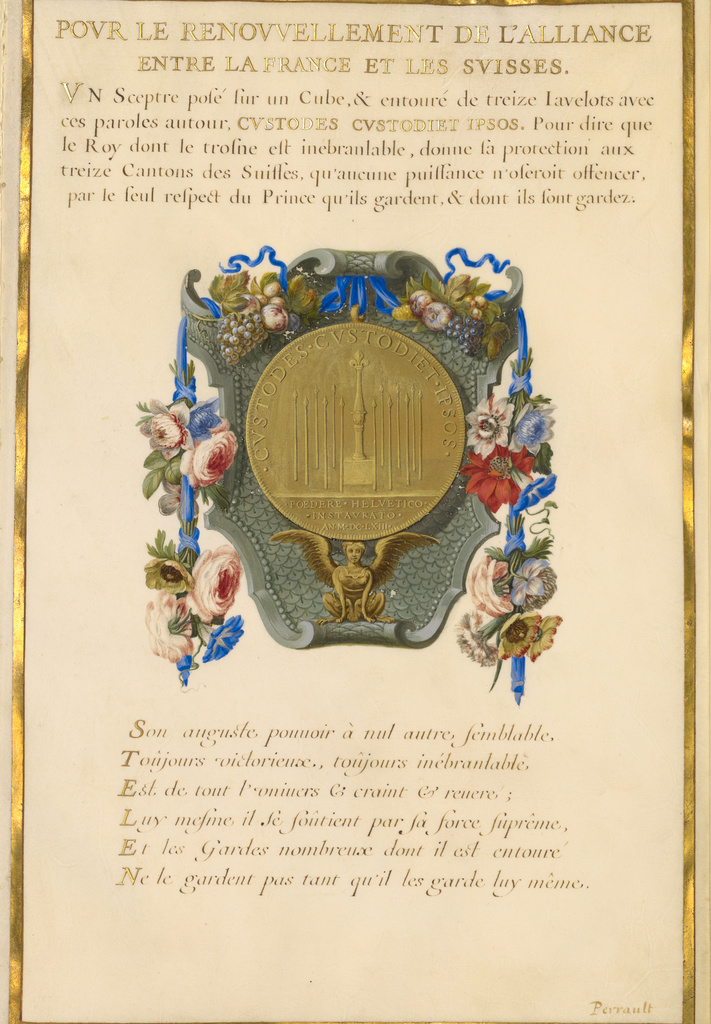 POVR LE RENOVVELLEMENT DE L'ALLIANCE
ENTRE LA FRANCE ET LES SVISSES.
VN Sceptre posé sur un Cube, & entouré de treize Iavelots avec
ces paroles autour, CVSTODES CVSTODIET IPSOS. Pour dire que
le Roy dont le trosne est inébranlable, donne sa protection aux
treize Cantons des Suisses, qu'aucune puissance n'oseroit offencer,
par le seul respect du Prince qu'ils gardent, & dont ils sont gardez.
·CVSTODES·CVSTODIET·IPSOS·
FOEDERE·HELVETICO·
·INSTAVRATO·
AN·M·DC·LXIII·
Son auguste pouuoir à nul autre semblable,
Toûjours victorieux, toûjours inébranlable
Est de tout l'vniuers & craint & reueré;
Luy mesme il se soûtient par sa force suprême,
Et les Gardes nombreux dont il est entouré
Ne le gardent pas tant qu'il les garde luy même.
Perrault